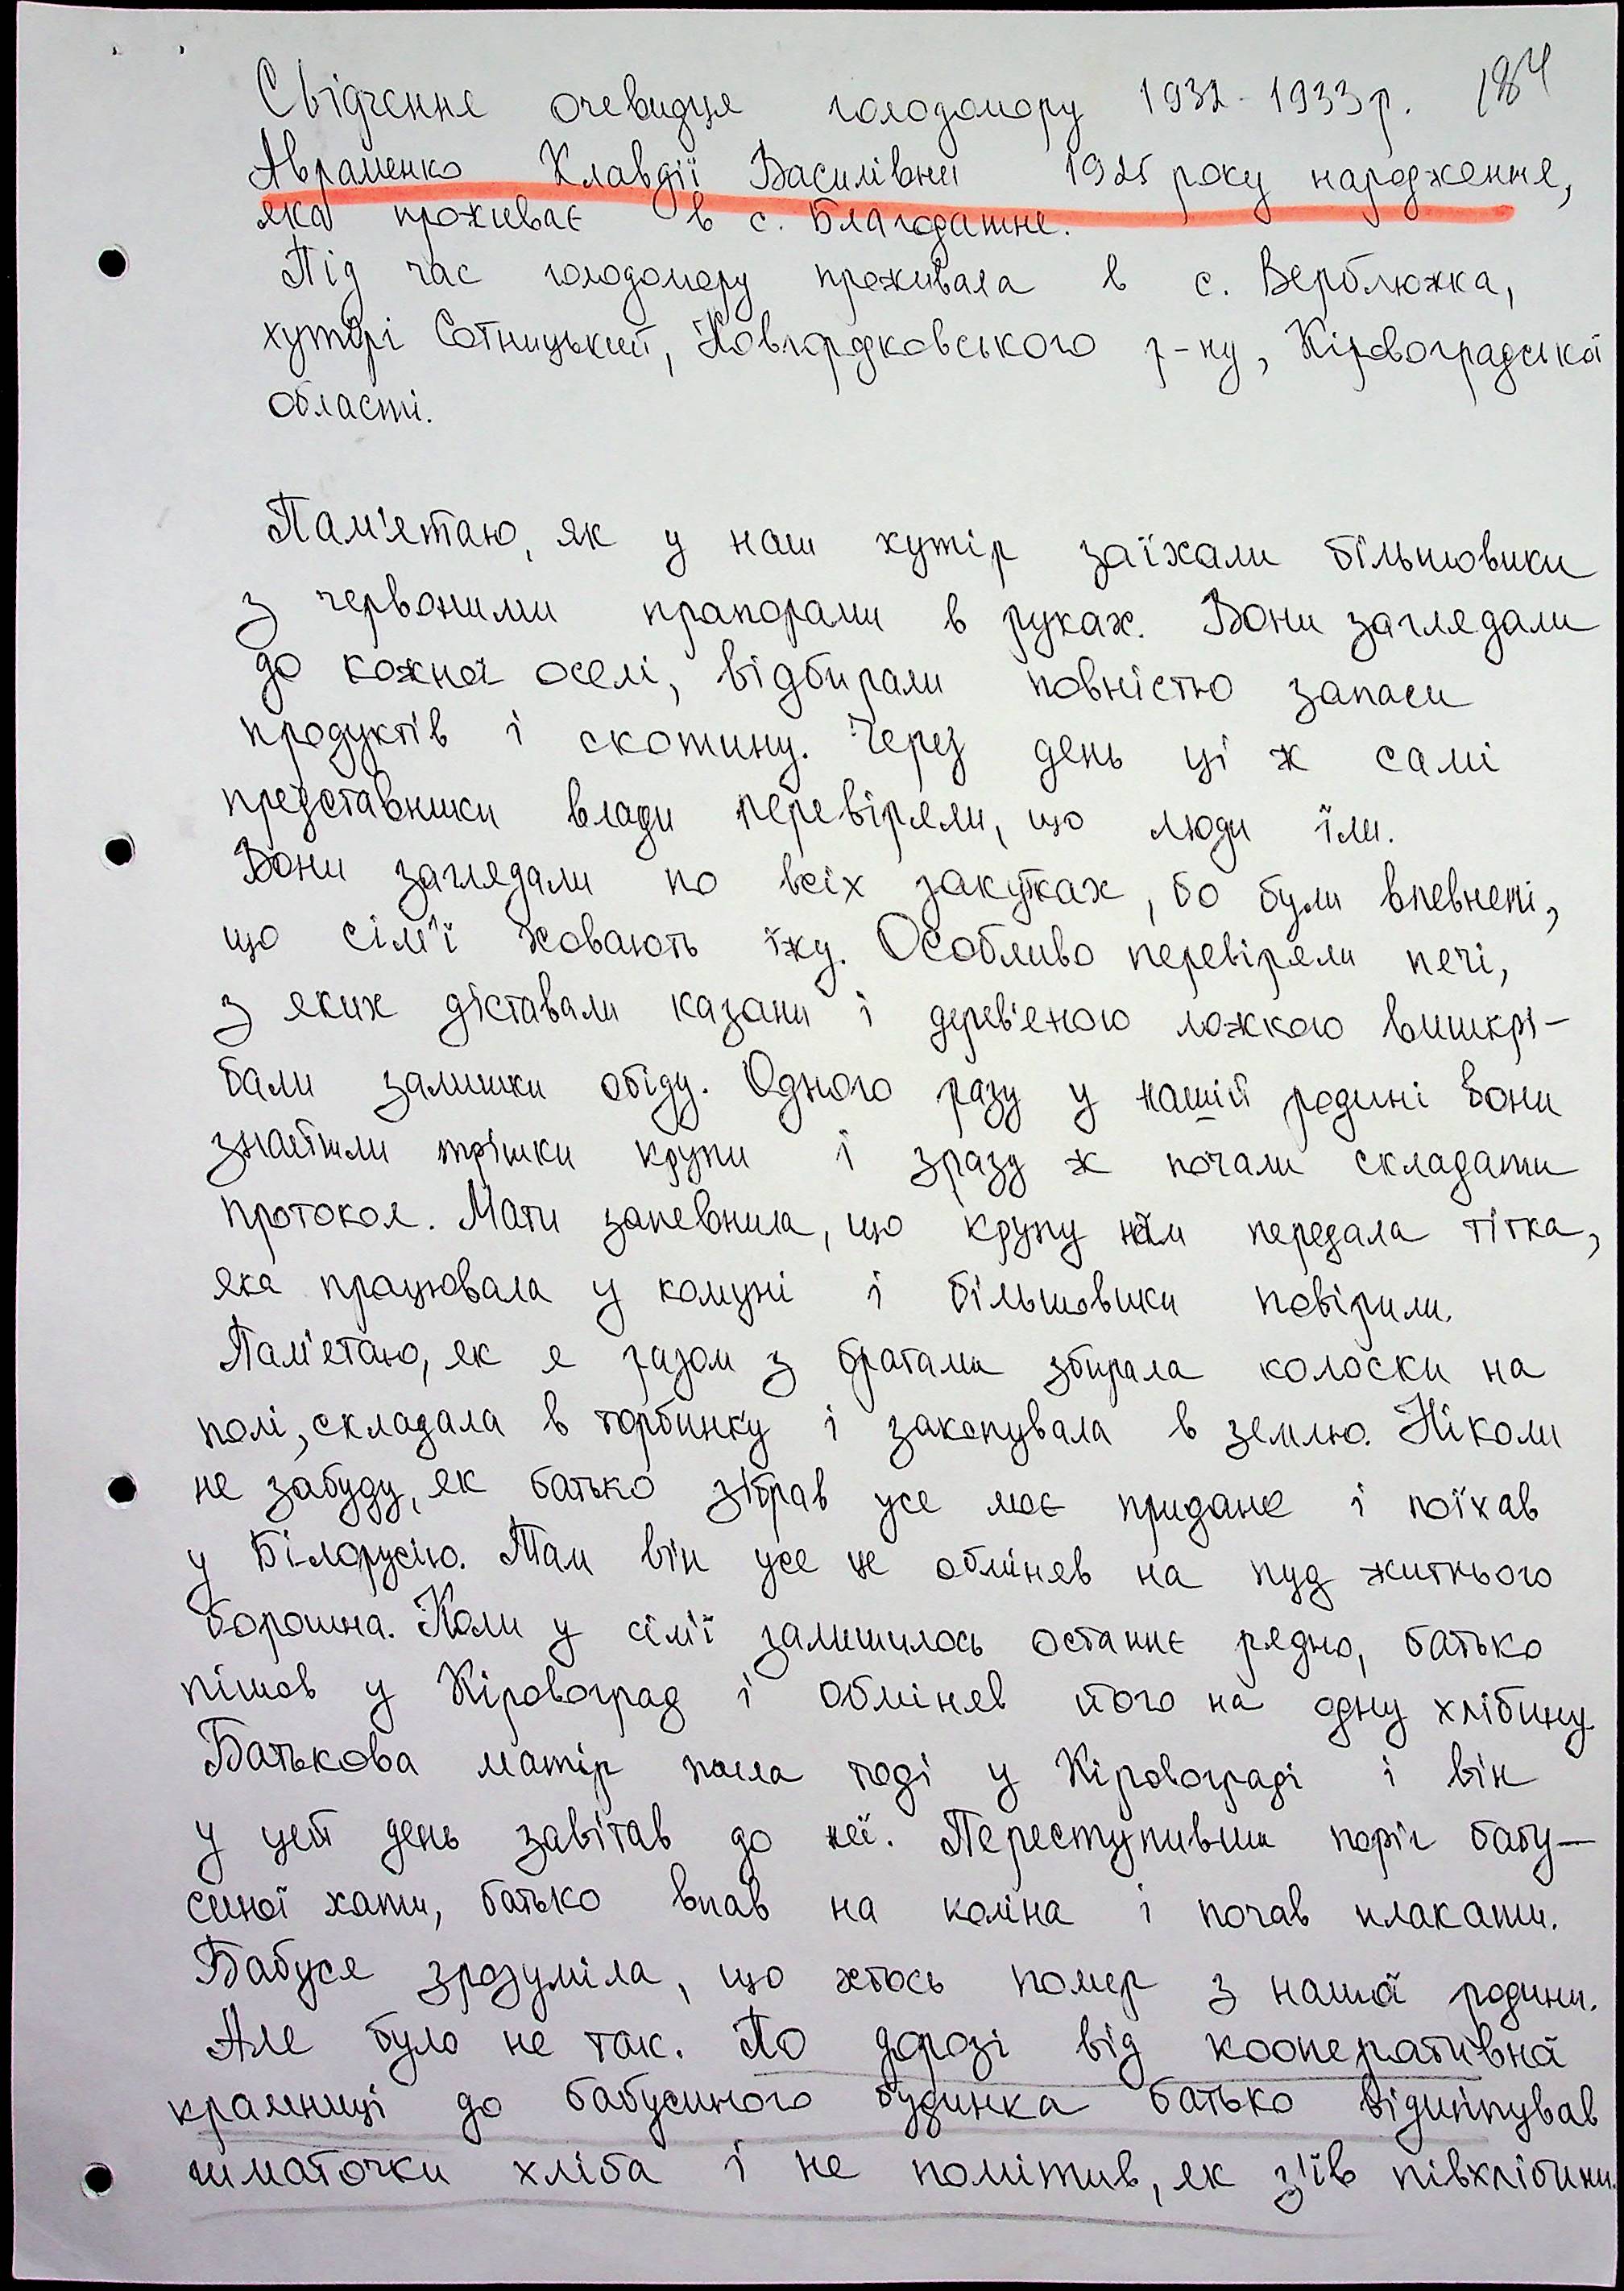 Свідчення очевидця голодомору 1932-1933р. 184
Авраменко Клавдії Василівни 1925 року народження,
яка проживає в с. Благодатне.
Під час голодомору проживала в с. Верблюжка,
хуторі Сотницький, Новгородковського р-ну, Кіровоградської
області.
Пам'ятаю, як у наш хутір заїхали більшовики
з червоними прапорами в руках. Вони заглядали
до кожної оселі, відбирали повністю запаси
продуктів і скотину. Через день ці ж самі
представники влади перевіряли, що люди їли.
Вони заглядали по всіх закутках, бо були впевнені,
що сім'ї ховають їжу. Особливо перевіряли печі,
з яких діставали казани і дерев'яною ложкою вишкрі-
бали залишки обіду. Одного разу у нашій родині вони
знайшли трішки крупи і зразу ж почали складати
протокол. Мати запевнила, що крупу нам передала тітка,
яка працювала у комуні і більшовики повірили.
Пам'ятаю, як я разом з братами збирала колоски на
полі, складала в торбинку і закопувала в землю. Ніколи
не забуду, як батько зібрав усе моє придане і поїхав
у Білорусію. Там він усе це обміняв на пуд житнього
борошна. Коли у сім'ї залишилось останнє рядно, батько
пішов у Кіровоград і обміняв його на одну хлібину
Батькова матір жила тоді у Кіровограді і він
у цей день завітав до неї. Переступивши поріг бабу-
синої хати, батько впав на коліна і почав плакати.
Бабуся зрозуміла, що хтось помер з нашої родини.
Але було не так. По дорозі від кооперативної
крамниці до бабусиного будинка батько відщіпував
шматочки хліба і не помітив, як з'їв півхлібини.